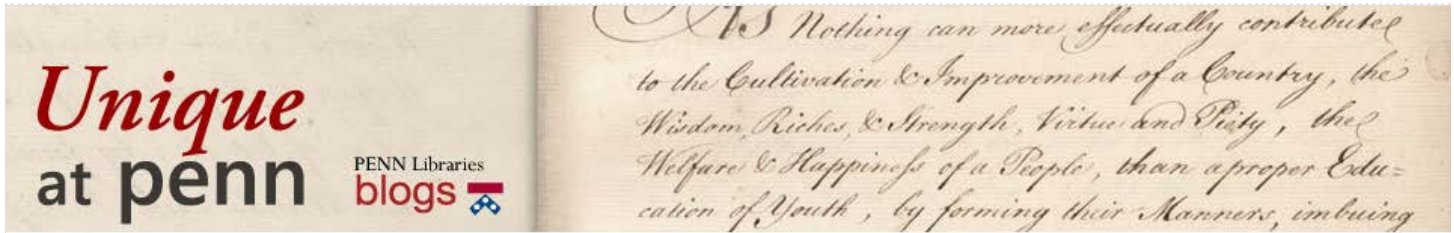 Unique
at penn
PENN Libraries
blogs
As Nothing can more effectually contribute
to the Cultivation & Improvement of a Country, the
Wisdom, Riches, & Strength, Virtue and Piety, the
Welfare & Happiness of a People, than a proper Edu=
cation of Youth, by forming their Manners, imbuing